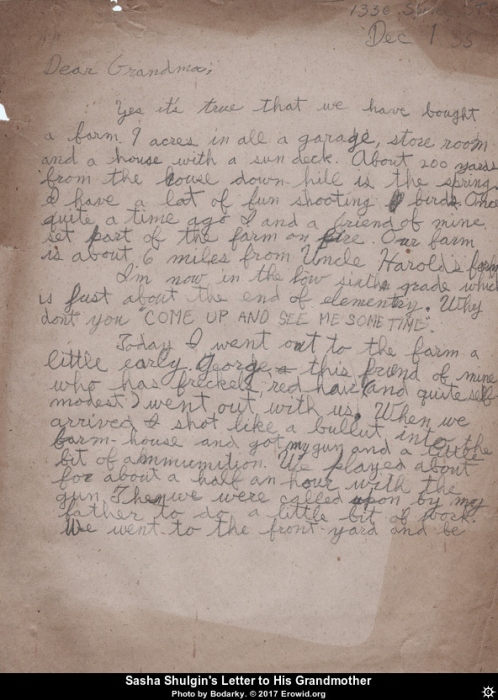 Dec 1 35
Dear Grandma;
Yes it's true that we have bought
a farm. 9 acres in all a garage, store room
and a house with a sun deck. About 200 yards
from the house down hill is the spring
I have a lot of fun shooting birds. Once
quite a time ago I and a friend of mine
set part of the farm on fire. Our farm
is about 6 miles from Uncle Harold's farm
I'm now in the low sixth grade which
is just about the end of elementry. Why
don't you "COME UP AND SEE ME SOME TIME".
Today I went out to the farm a
little early. George, this friend of mine
who has freckels, red hair (and quite self
modest) went out with us. When we
arrived I shot like a bullet into the
farm-house and got my gun and a little
bit of ammunition. We played about
for about a half an hour with the
gun. Then we were called upon by my
father to do a little bit of work.
We went to the front-yard and be
Sasha Shulgin's Letter to His Grandmother
Photo by Bodarky. © 2017 Erowid.org